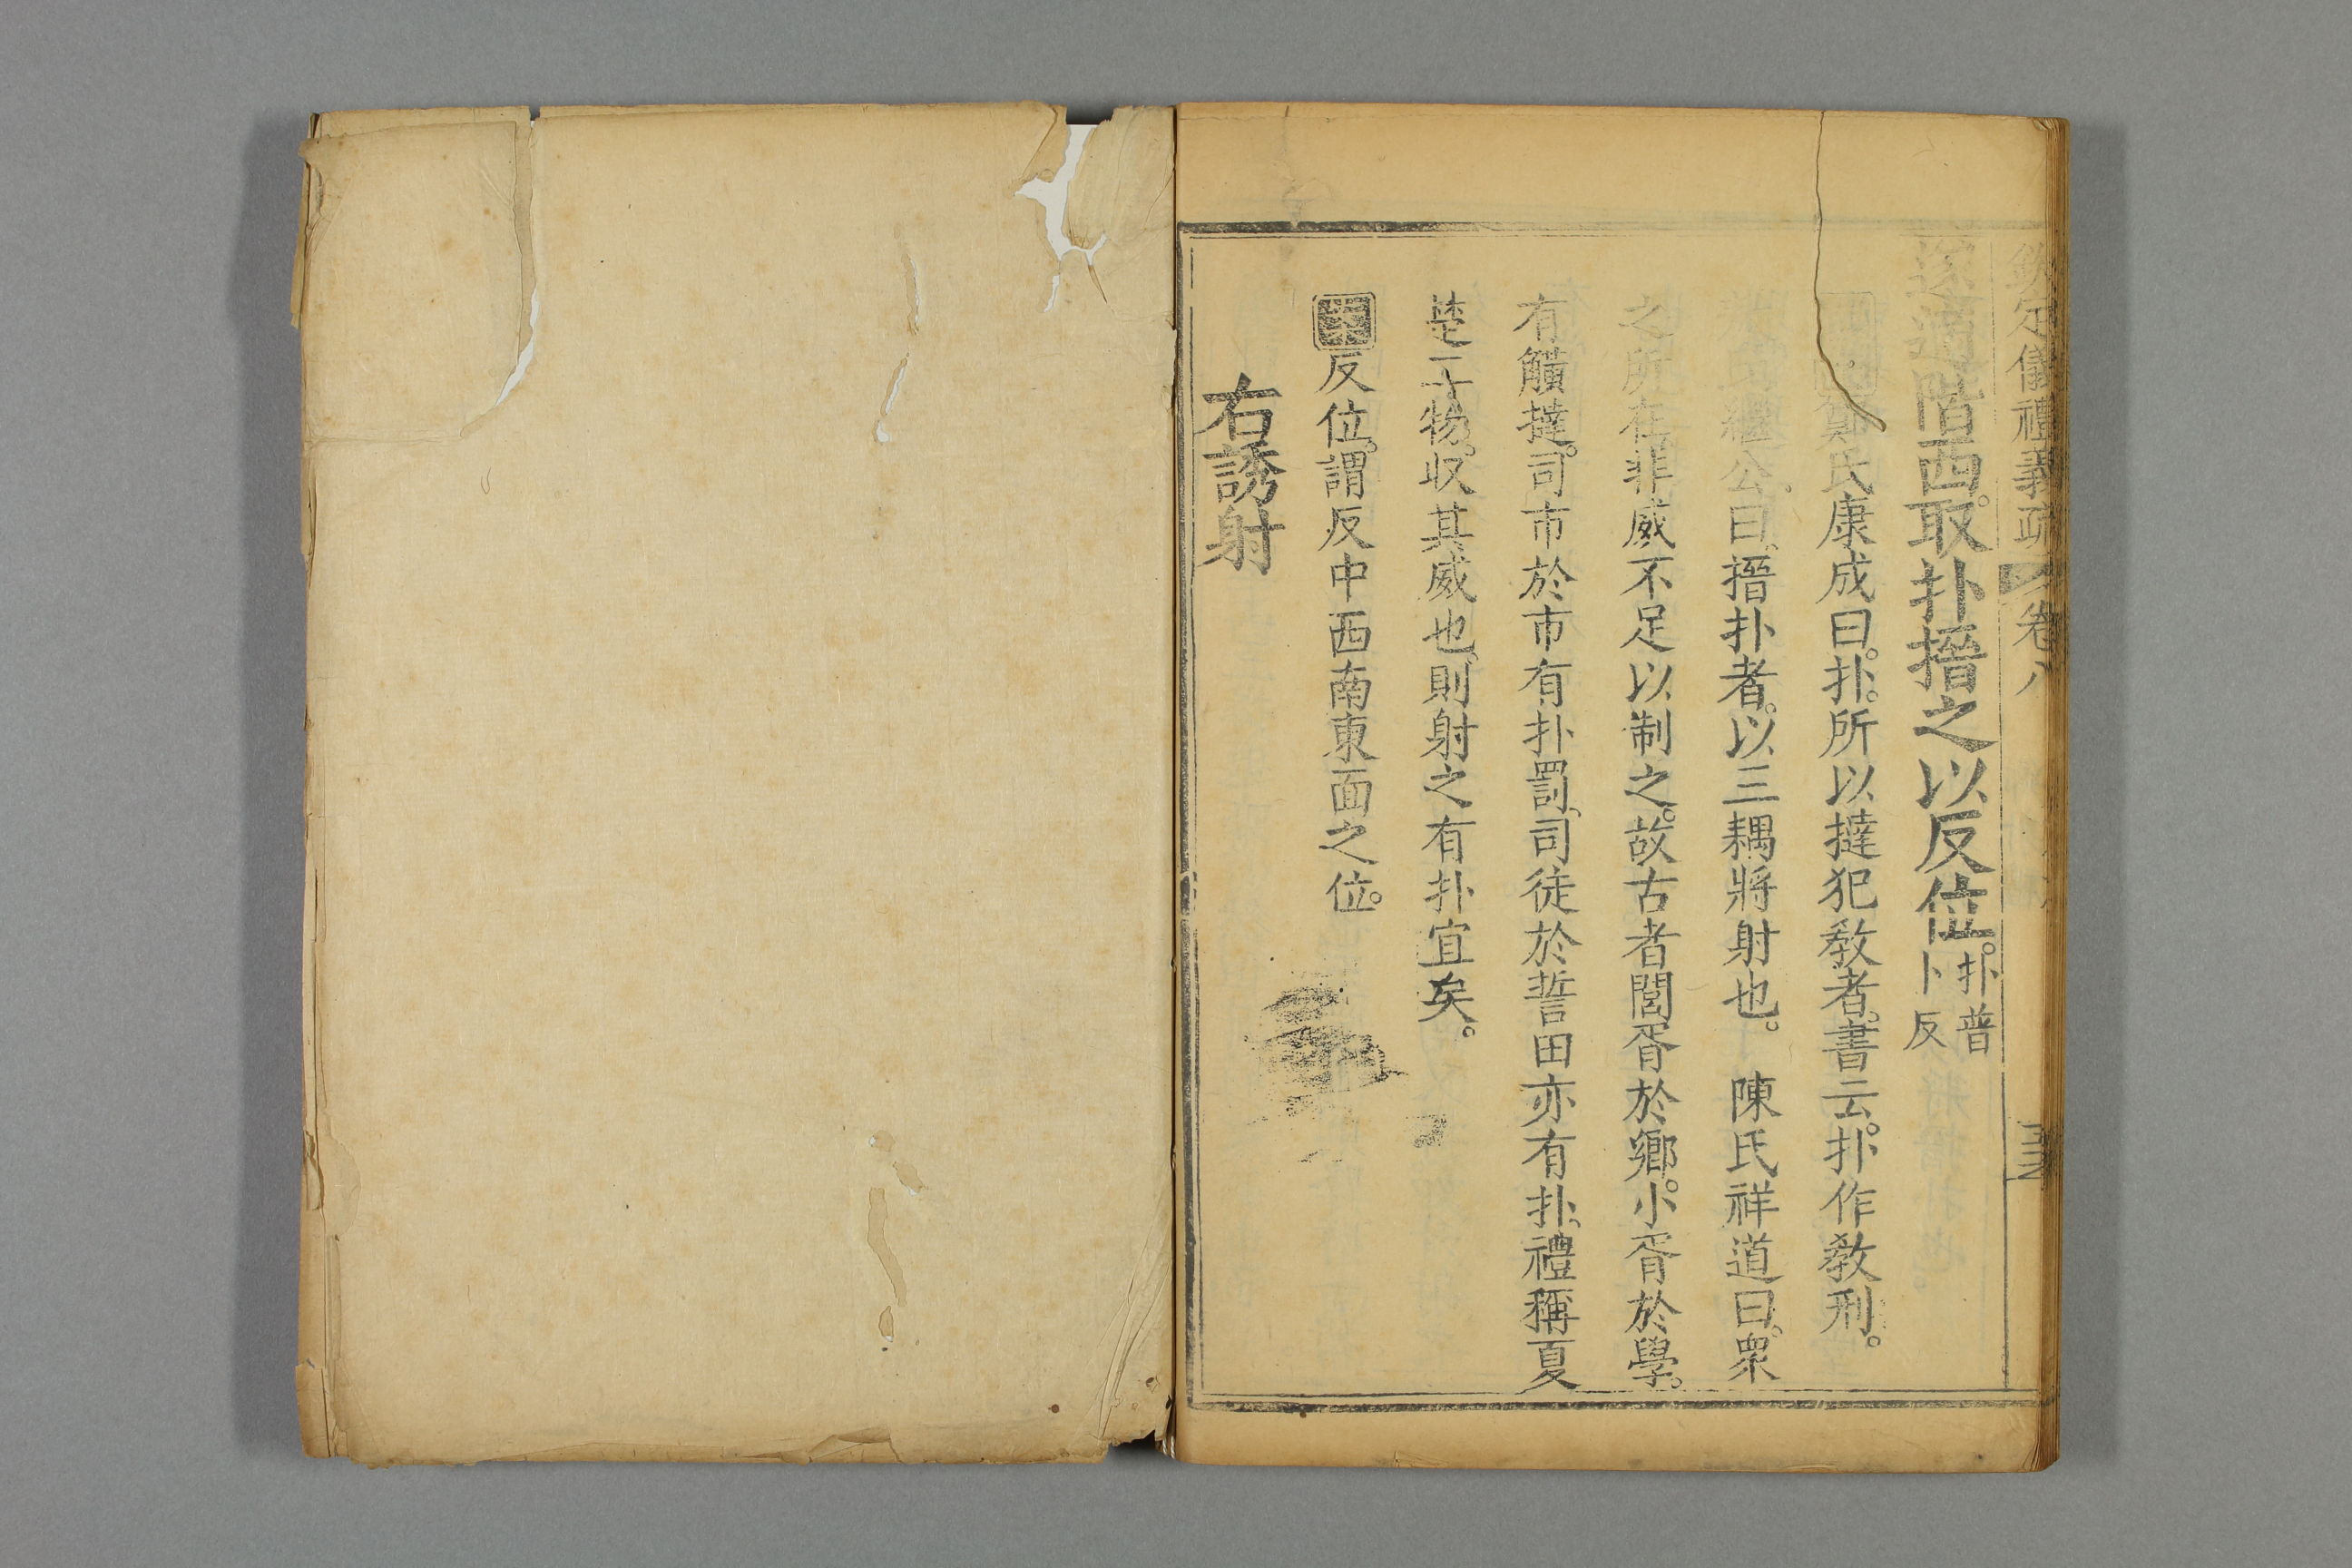 欽定儀禮義疏 卷八
遂適階西。取扑搢之以反位。扑普卜反
鄭氏康成曰。扑。所以撻犯教者。書云。扑作教刑。
繼公。曰。搢扑者。以三耦將射也。 陳氏祥道曰。衆
之所在非威不足以制之。故古者閭胥於鄉。小胥於學。
有觵撻。司市於市有扑罰。司徒於誓田亦有扑。禮稱夏
楚二物。収其威也。則射之有扑宜矣。
反位。謂反中西南東面之位。
右誘射